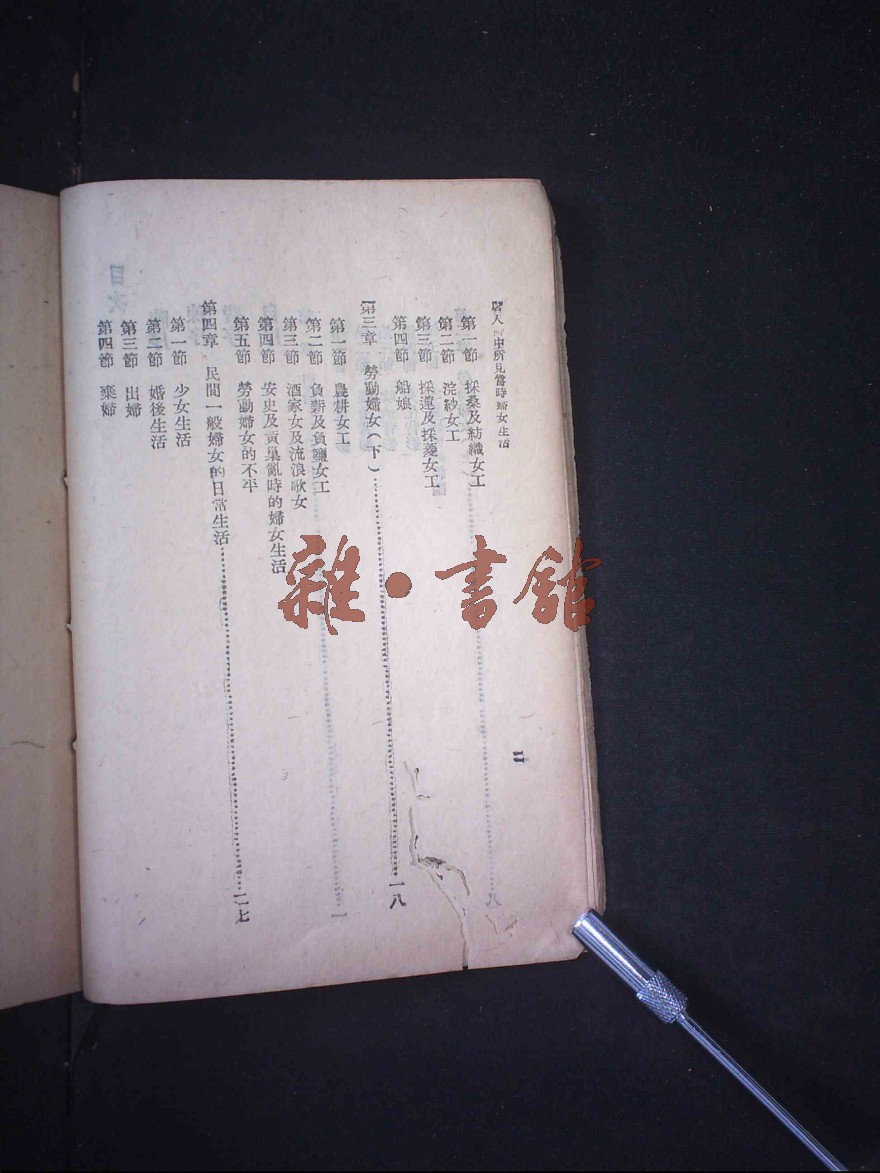 唐人詩中所見當時婦女生活
二
第一節 採桑及紡織女工
第二節 浣紗女工
第三節 採蓮及採菱女工
第四節 船娘
第三章 勞動婦女(下)……一八
第一節 農耕女工
第二節 負薪及負鹽女工
第三節 酒家女及流浪歌女
第四節 安史及黃巢亂時的婦女生活
第五節 勞動婦女的不平
第四章 民間一般婦女的日常生活……二七
第一節 少女生活
第二節 婚後生活
第三節 出婦
第四節 棄婦
目次
雜·書館